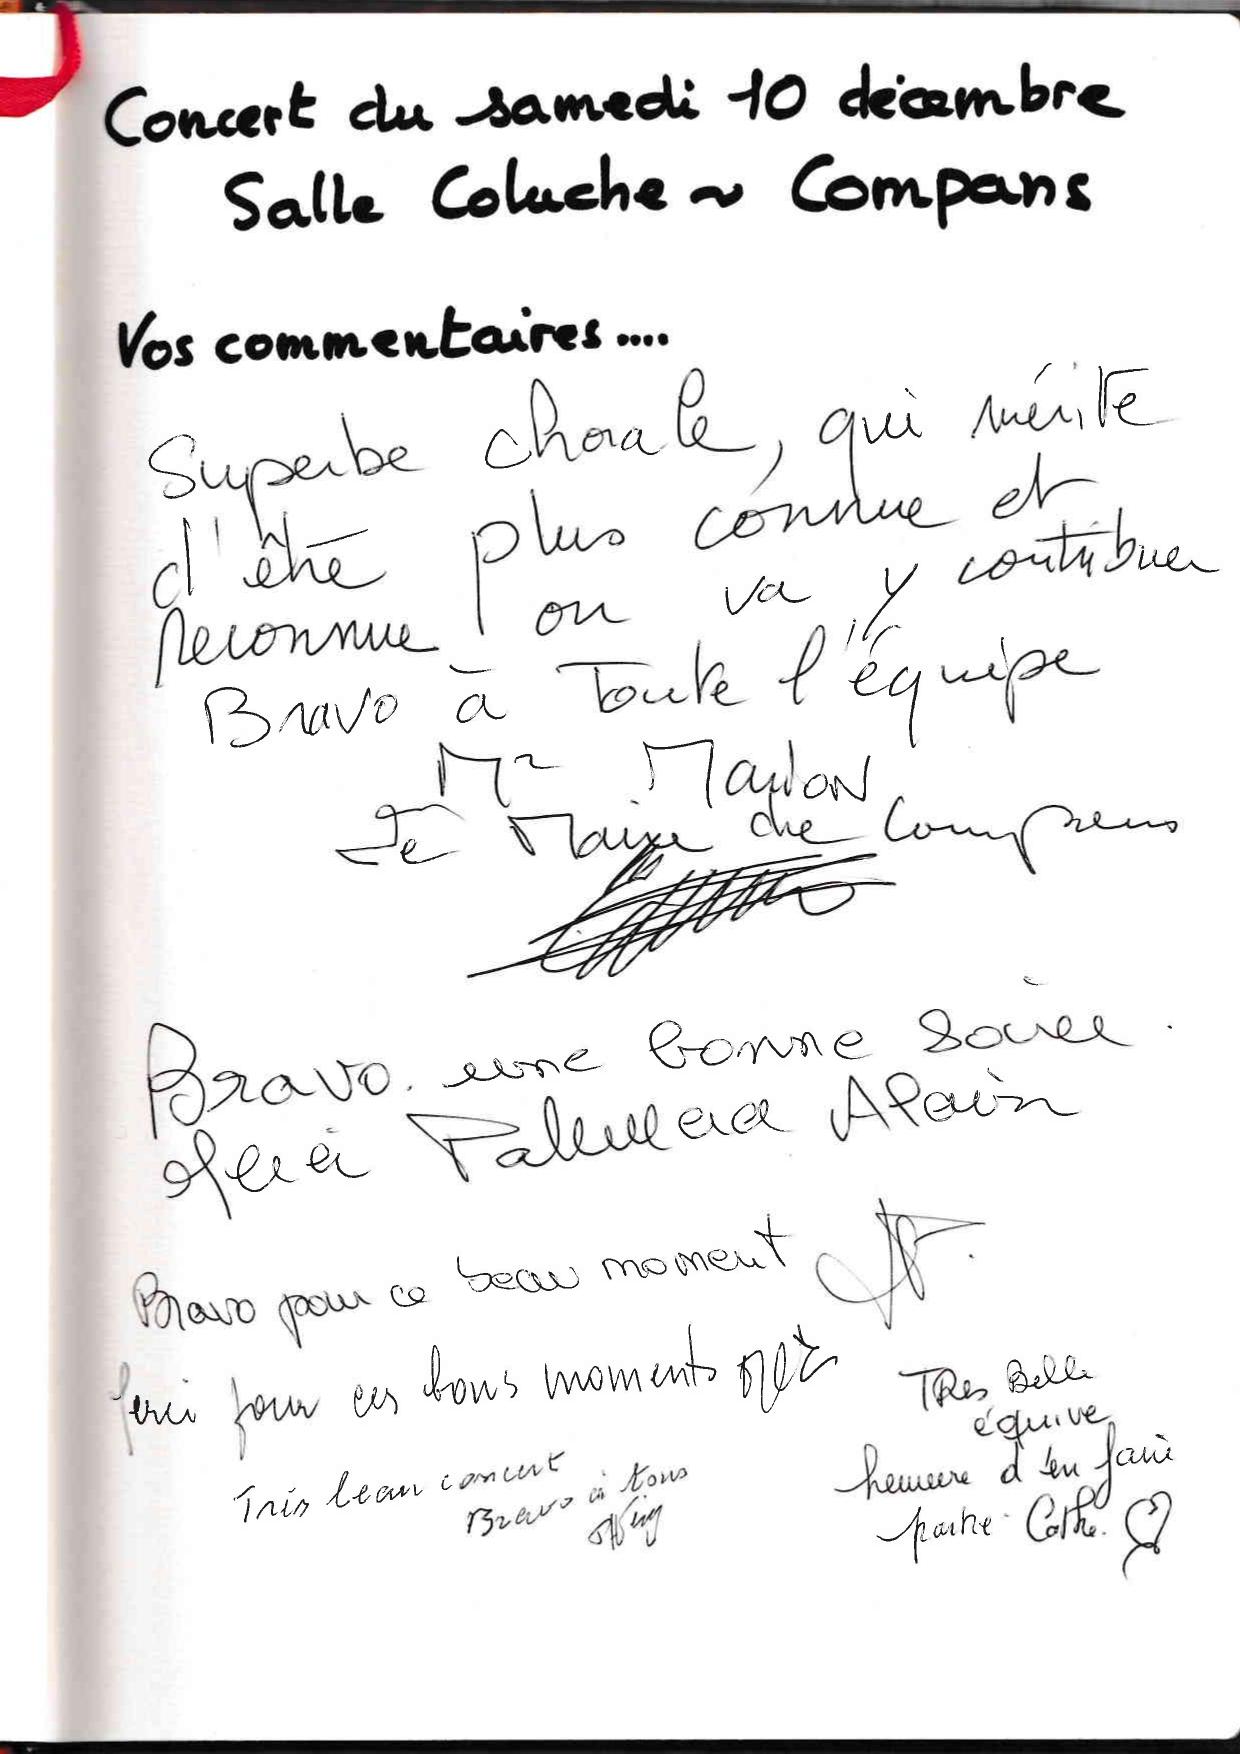 Concert du samedi 10 décembre
Salle Coluche ~ Compans
Vos commentaires....
Superbe chorale, qui mérite
d'être plus connue et
reconnue on va y contribuer
Bravo à toute l'équipe
Mr Marion
Le Maire de Compans
Bravo. une bonne soirée.
Merci Alain
Bravo pour ce beau moment
Merci pour ces bons moments
Très beau concert
Bravo à tous
TRès Belle
équipe
heureuse d'en faire
partie Cathe.